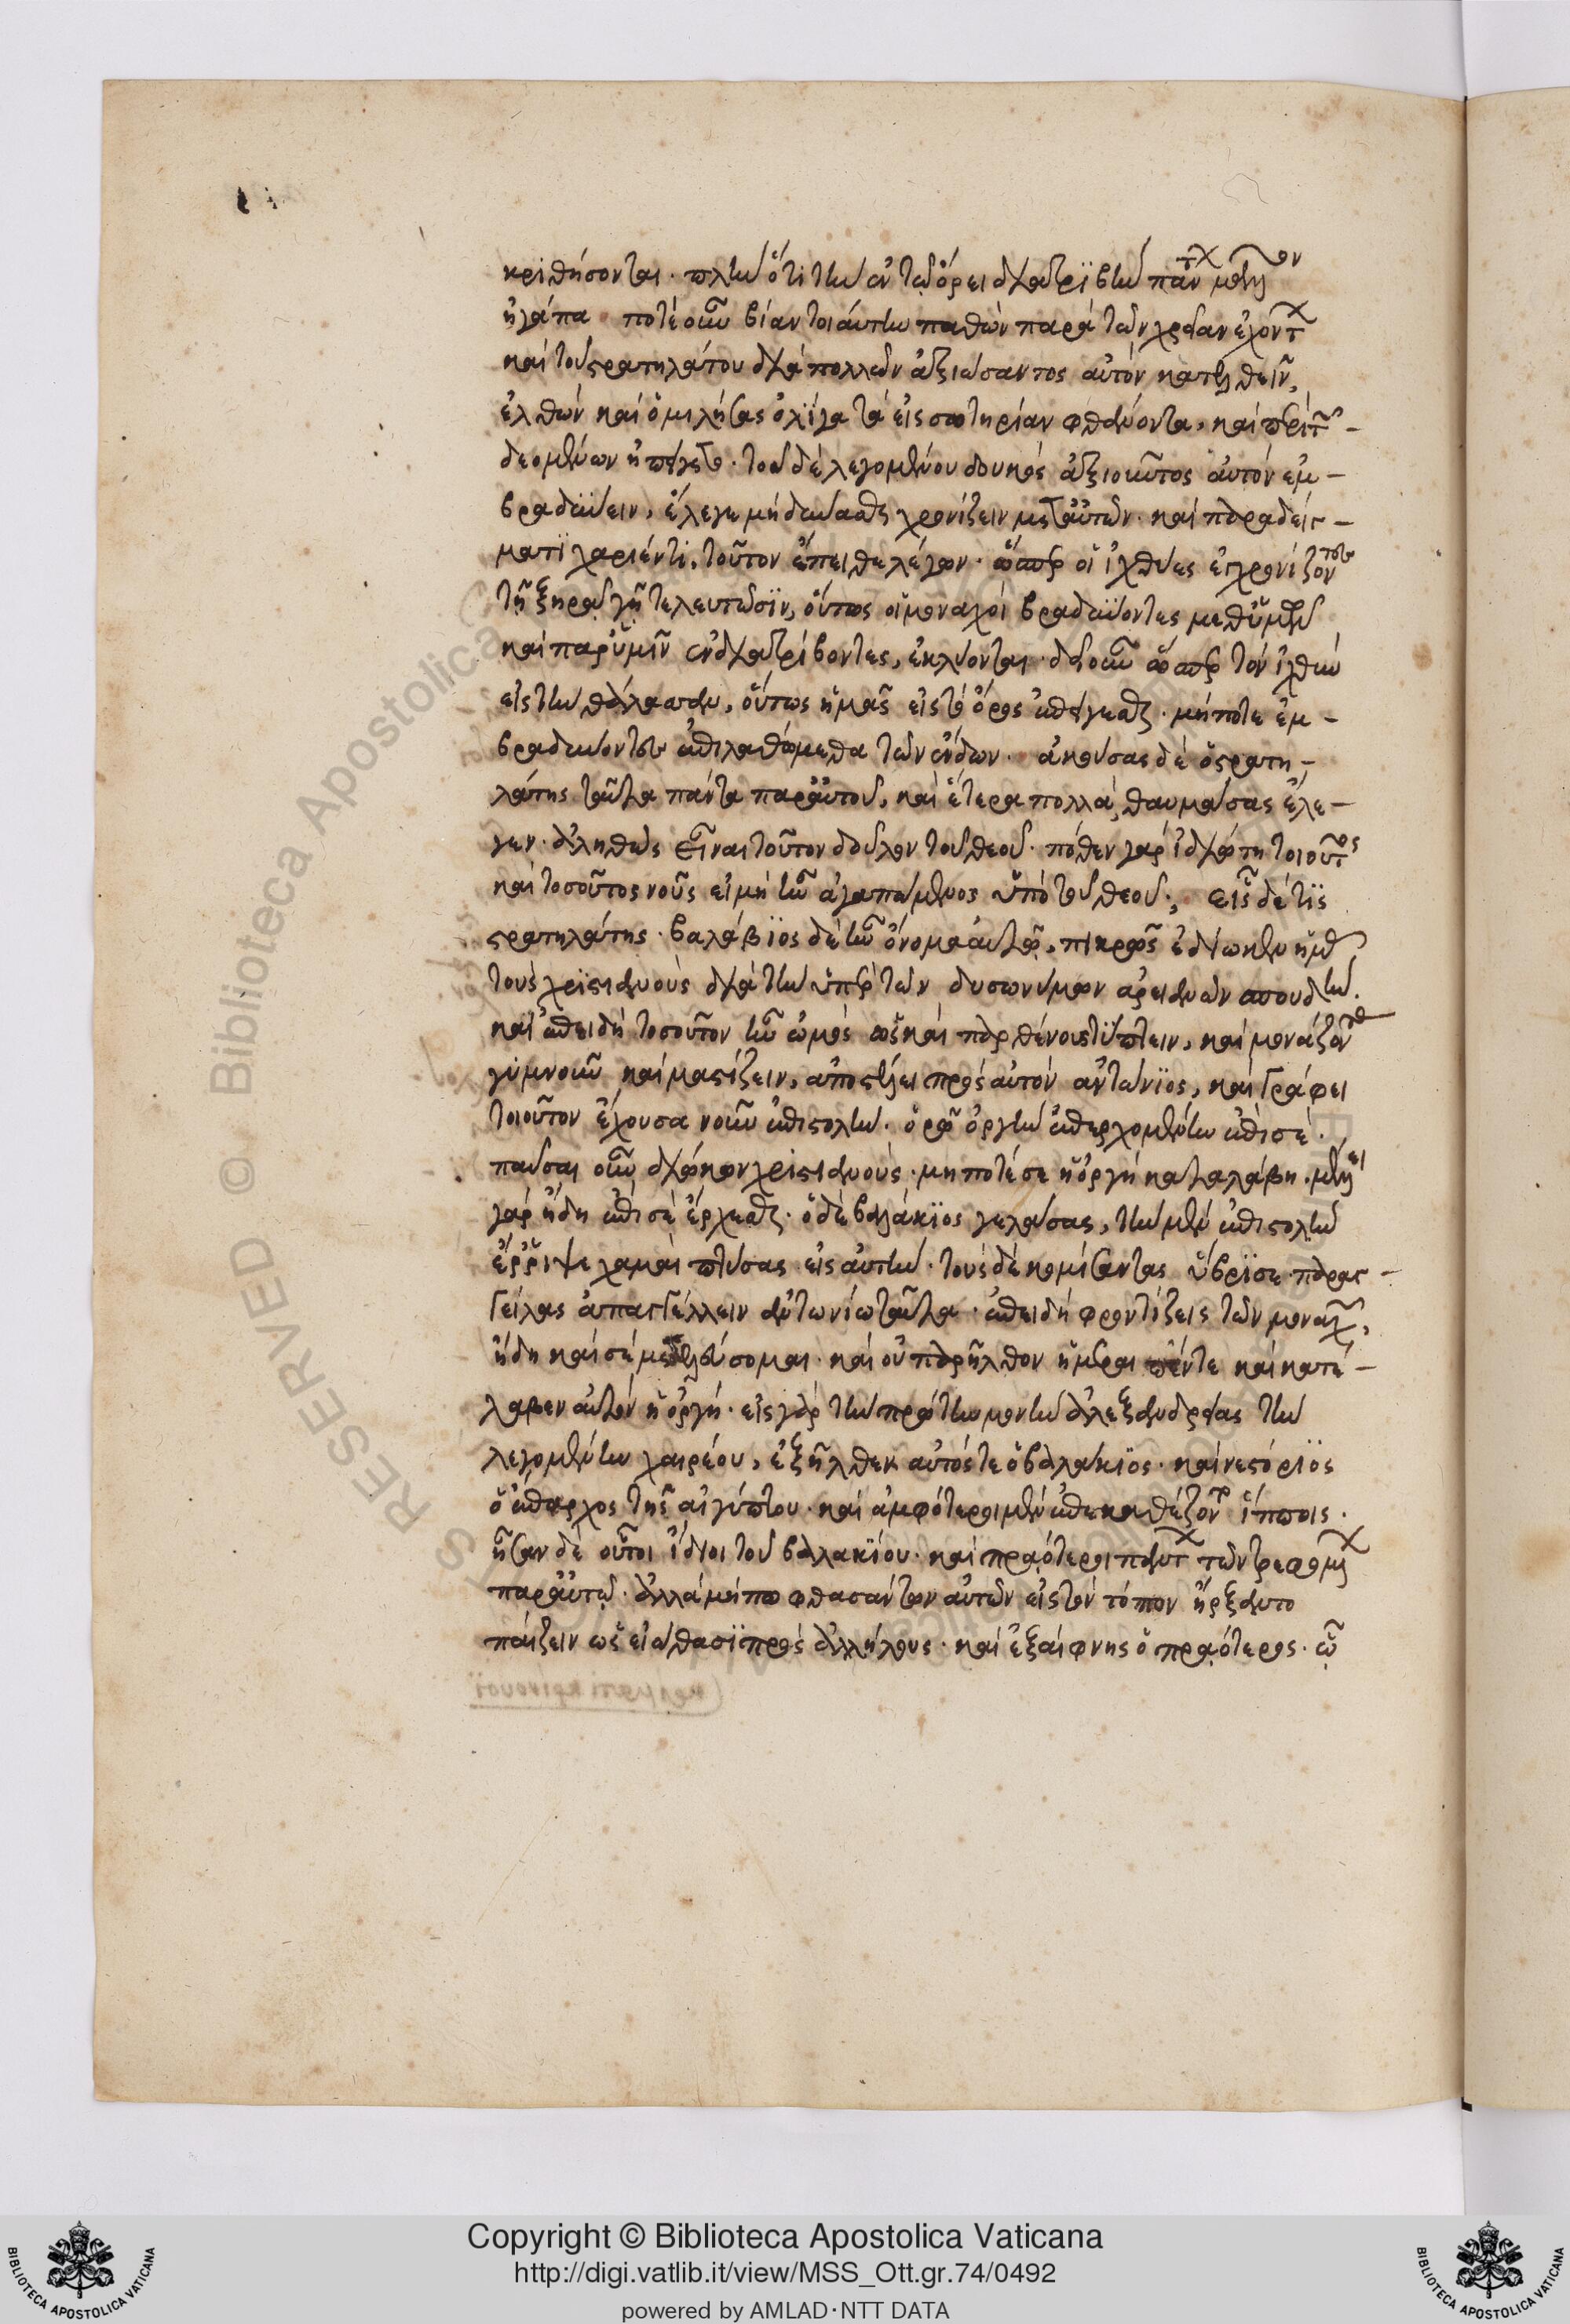 κριθήσονται· πλὴν ὅτι τὴν ἐν τῷ ὄρει διατριβὴν πάντων μᾶλλον
ἠγάπα ποτὲ οὖν βίαν τοιαύτην παθὼν παρὰ τῶν χρείαν ἐχόντων
καὶ τοῦ στρατηλάτου διὰ πολλῶν ἀξιώσαντος αὐτὸν κατελθεῖν,
ἐλθὼν καὶ ὁμιλήσας ὀλίγα τὰ εἰς σωτηρίαν φθάνοντα, καὶ περὶ τῶν
δεομένων ἠπείγετο· τοῦ δὲ λεγομένου δουκὸς ἀξιοῦντος αὐτὸν ἐμ-
βραδύνειν, ἔλεγε μὴ δύνασθαι χρονίζειν μετ' αὐτῶν· καὶ παραδείγ-
ματι χαρίεντι, τοῦτον ἔπειθε λέγων· ὥσπερ οἱ ἰχθύες ἐγχρονίζοντες
τῇ ξηρᾷ γῇ τελευτῶσιν, οὕτως οἱ μοναχοὶ βραδύνοντες μεθ' ὑμῶν
καὶ παρ' ὑμῖν ἐνδιατρίβοντες, ἐκλύονται· δεῖ οὖν ὥσπερ τὸν ἰχθὺν
εἰς τὴν θάλασσαν, οὕτως ἡμᾶς εἰς τὸ ὄρος ἐπείγεσθαι· μήποτε ἐμ-
βραδύνοντες ἐπιλαθώμεθα τῶν ἔνδων· ἀκούσας δὲ ὁ στρατη-
λάτης ταῦτα πάντα παρ' αὐτοῦ, καὶ ἕτερα πολλὰ, θαυμάσας ἔλε-
γεν· ἀληθῶς εἶναι τοῦτον δοῦλον τοῦ θεοῦ· πόθεν γὰρ ἰδιώτῃ τοιοῦτος
καὶ τοσοῦτος νοῦς εἰ μὴ ἦν ἀγαπώμενος ὑπὸ τοῦ θεοῦ·, εἷς δέ τις
στρατηλάτης· βαλάβιος δὲ ἦν ὄνομα αὐτῷ, πικρῶς ἐδίωκεν ἡμᾶς
τοὺς χριστιανοὺς διὰ τὴν ὑπὲρ τῶν δυσωνύμων ἀρειανῶν σπουδὴν.
καὶ ἐπειδὴ τοσοῦτον ἦν ὠμὸς ὡς καὶ παρθένους τύπτειν, καὶ μονάζοντας
γυμνοῦν καὶ μαστίζειν, ἀποστέλλει πρὸς αὐτὸν ἀντώνιος, καὶ γράφει
τοιοῦτον ἔχουσα νοῦν ἐπιστολὴν· ὁρῶ ὀργὴν ἐπερχομένην ἐπὶ σὲ·
παῦσαι οὖν διώκων χριστιανοὺς· μήποτέ σε ἡ ὀργὴ καταλάβῃ· μέλλει
γὰρ ἤδη ἐπὶ σὲ ἔρχεσθαι· ὁ δὲ βαλάκιος γελάσας, τὴν μὲν ἐπιστολὴν
ἔῤῥιψε χαμαὶ πτύσας εἰς αὐτὴν· τοὺς δὲ κομίσαντας ὕβρισε παραγ-
γείλας ἀπαγγέλλειν ἀντωνίῳ ταῦτα· ἐπειδὴ φροντίζεις τῶν μοναχῶν,
ἤδη καὶ σὲ μετελεύσομαι· καὶ οὐ παρῆλθον ἡμέραι πέντε καὶ κατέ-
λαβεν αὐτὸν ἡ ὀργή· εἰς γὰρ τὴν πρώτην μονὴν ἀλεξανδρείας τὴν
λεγομένην χαιρέου, ἐξῆλθεν αὐτός τε ὁ βαλάκιος· καὶ νεστόριος
ὁ ἔπαρχος τῆς αἰγύπτου· καὶ ἀμφότεροι μὲν ἐπεκαθέζοντο ἵπποις·
ἦσαν δὲ οὗτοι ἴδιοι τοῦ βαλακίου· καὶ πραότεροι πάντων τῶν τρεφομένων
παρ' αὐτῷ· ἀλλὰ μήπω φθασάντων αὐτῶν εἰς τὸν τόπον ἤρξαντο
παίζειν ὡς εἰώθασι πρὸς ἀλλήλους· καὶ ἐξαίφνης ὁ πραότερος· ᾧ
Copyright © Biblioteca Apostolica Vaticana
http://digi.vatlib.it/view/MSS_Ott.gr.74/0492
powered by AMLAD·NTT DATA